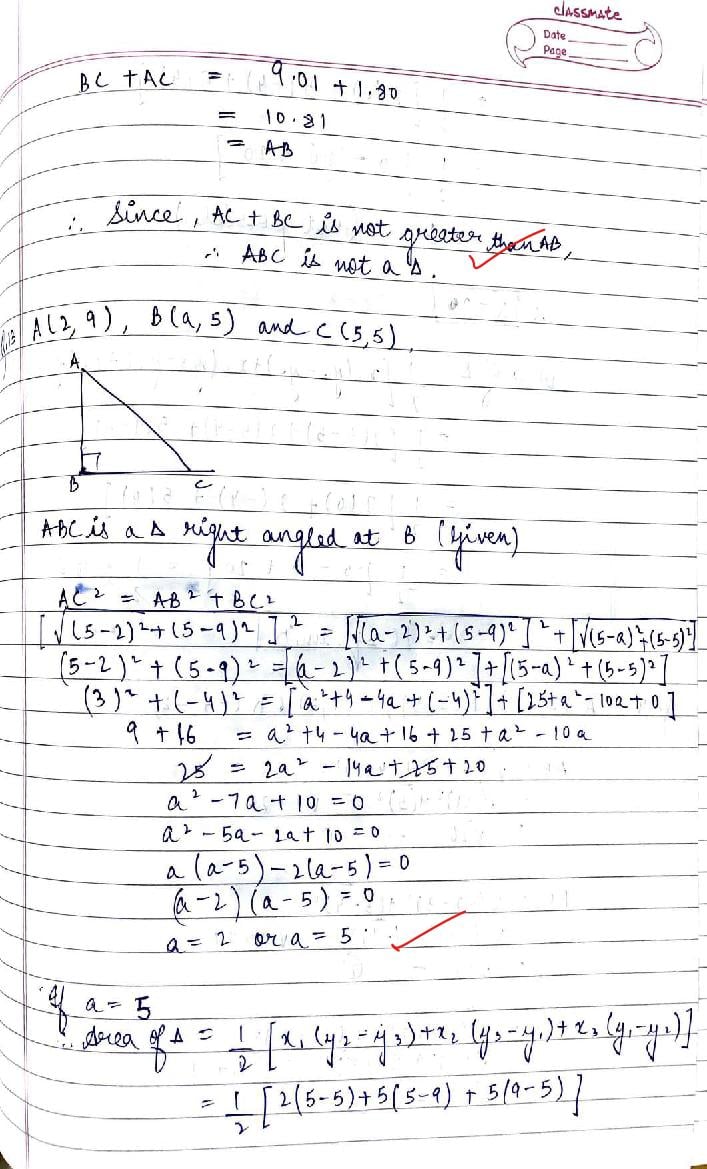 classmate
Date
Page
BC + AC = 9.01 + 1.80
= 10.81
= AB
∴ Since, AC + BC is not greater than AB,
∴ ABC is not a Δ.
A(2,9), B(a,5) and C(5,5)
A
B C
ABC is a Δ right angled at B (Given)
AC² = AB² + BC²
[√(5-2)²+(5-9)²]² = [√(a-2)²+(5-9)²]² + [√(5-a)²+(5-5)²]
(5-2)² + (5-9)² = [(a-2)² + (5-9)²] + [(5-a)² + (5-5)²]
(3)² + (-4)² = [a²+4-4a+(-4)²] + [25+a²-10a+0]
9 + 16 = a²+4-4a+16+25+a²-10a
25 = 2a² - 14a + 25 + 20
a² - 7a + 10 = 0
a² - 5a - 2a + 10 = 0
a(a-5) - 2(a-5) = 0
(a-2)(a-5) = 0
a = 2 or a = 5
If a = 5
∴ Area of Δ = 1/2 [x₁(y₂-y₃)+x₂(y₃-y₁)+x₃(y₁-y₂)]
= 1/2 [2(5-5)+5(5-9)+5(9-5)]